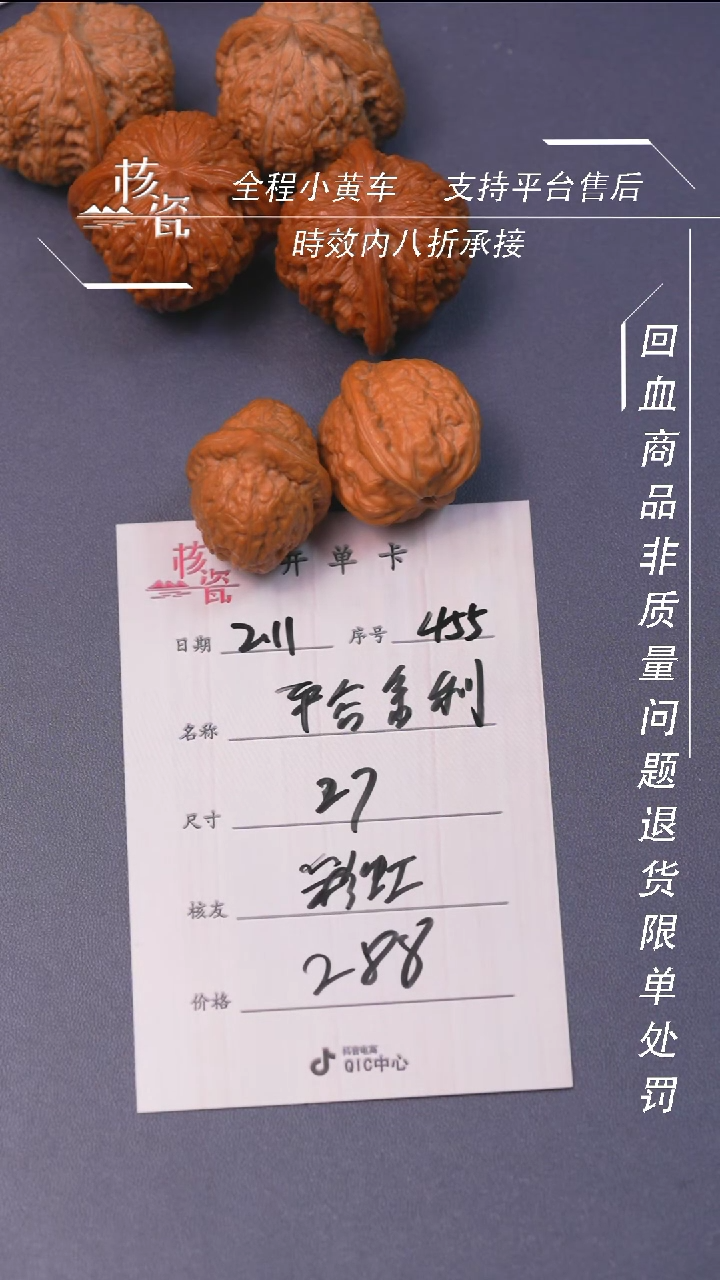 核瓷
全程小黄车 支持平台售后
時效内八折承接
回血商品非质量问题退货限单处罚
核瓷
开单卡
日期 2.11 序号 455
名称 平谷金利
尺寸 27
核友 彩虹
价格 288
抖音电商
QIC中心